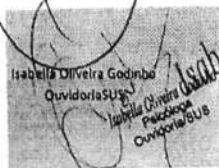 Isabella Oliveira Godinho
OuvidoriaSUS
Isabella Oliveira
Psicóloga
Ouvidoria/SUS